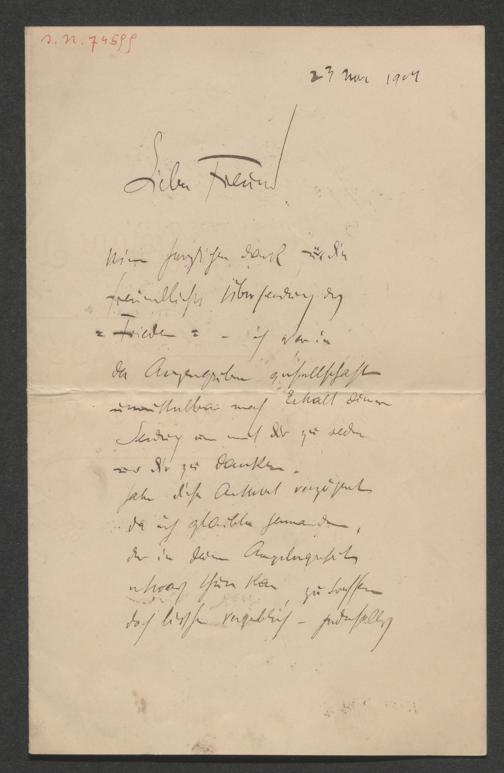 I. N. 74599
23 Nov 1904
Lieber Freund!
herzlichen Dank für die
freundliche Übersendung des
= Frieden = - ich war in
der gesellschaft
unmittelbar nach Erhalt deiner
Sendung um mit dir zu reden
dir zu danken.
habe diese Antwort verzögert
da ich glaubte jemanden,
der in deiner Angelegenheit
etwas thun kan, zu treffen
doch bisher vergeblich - jedenfalls